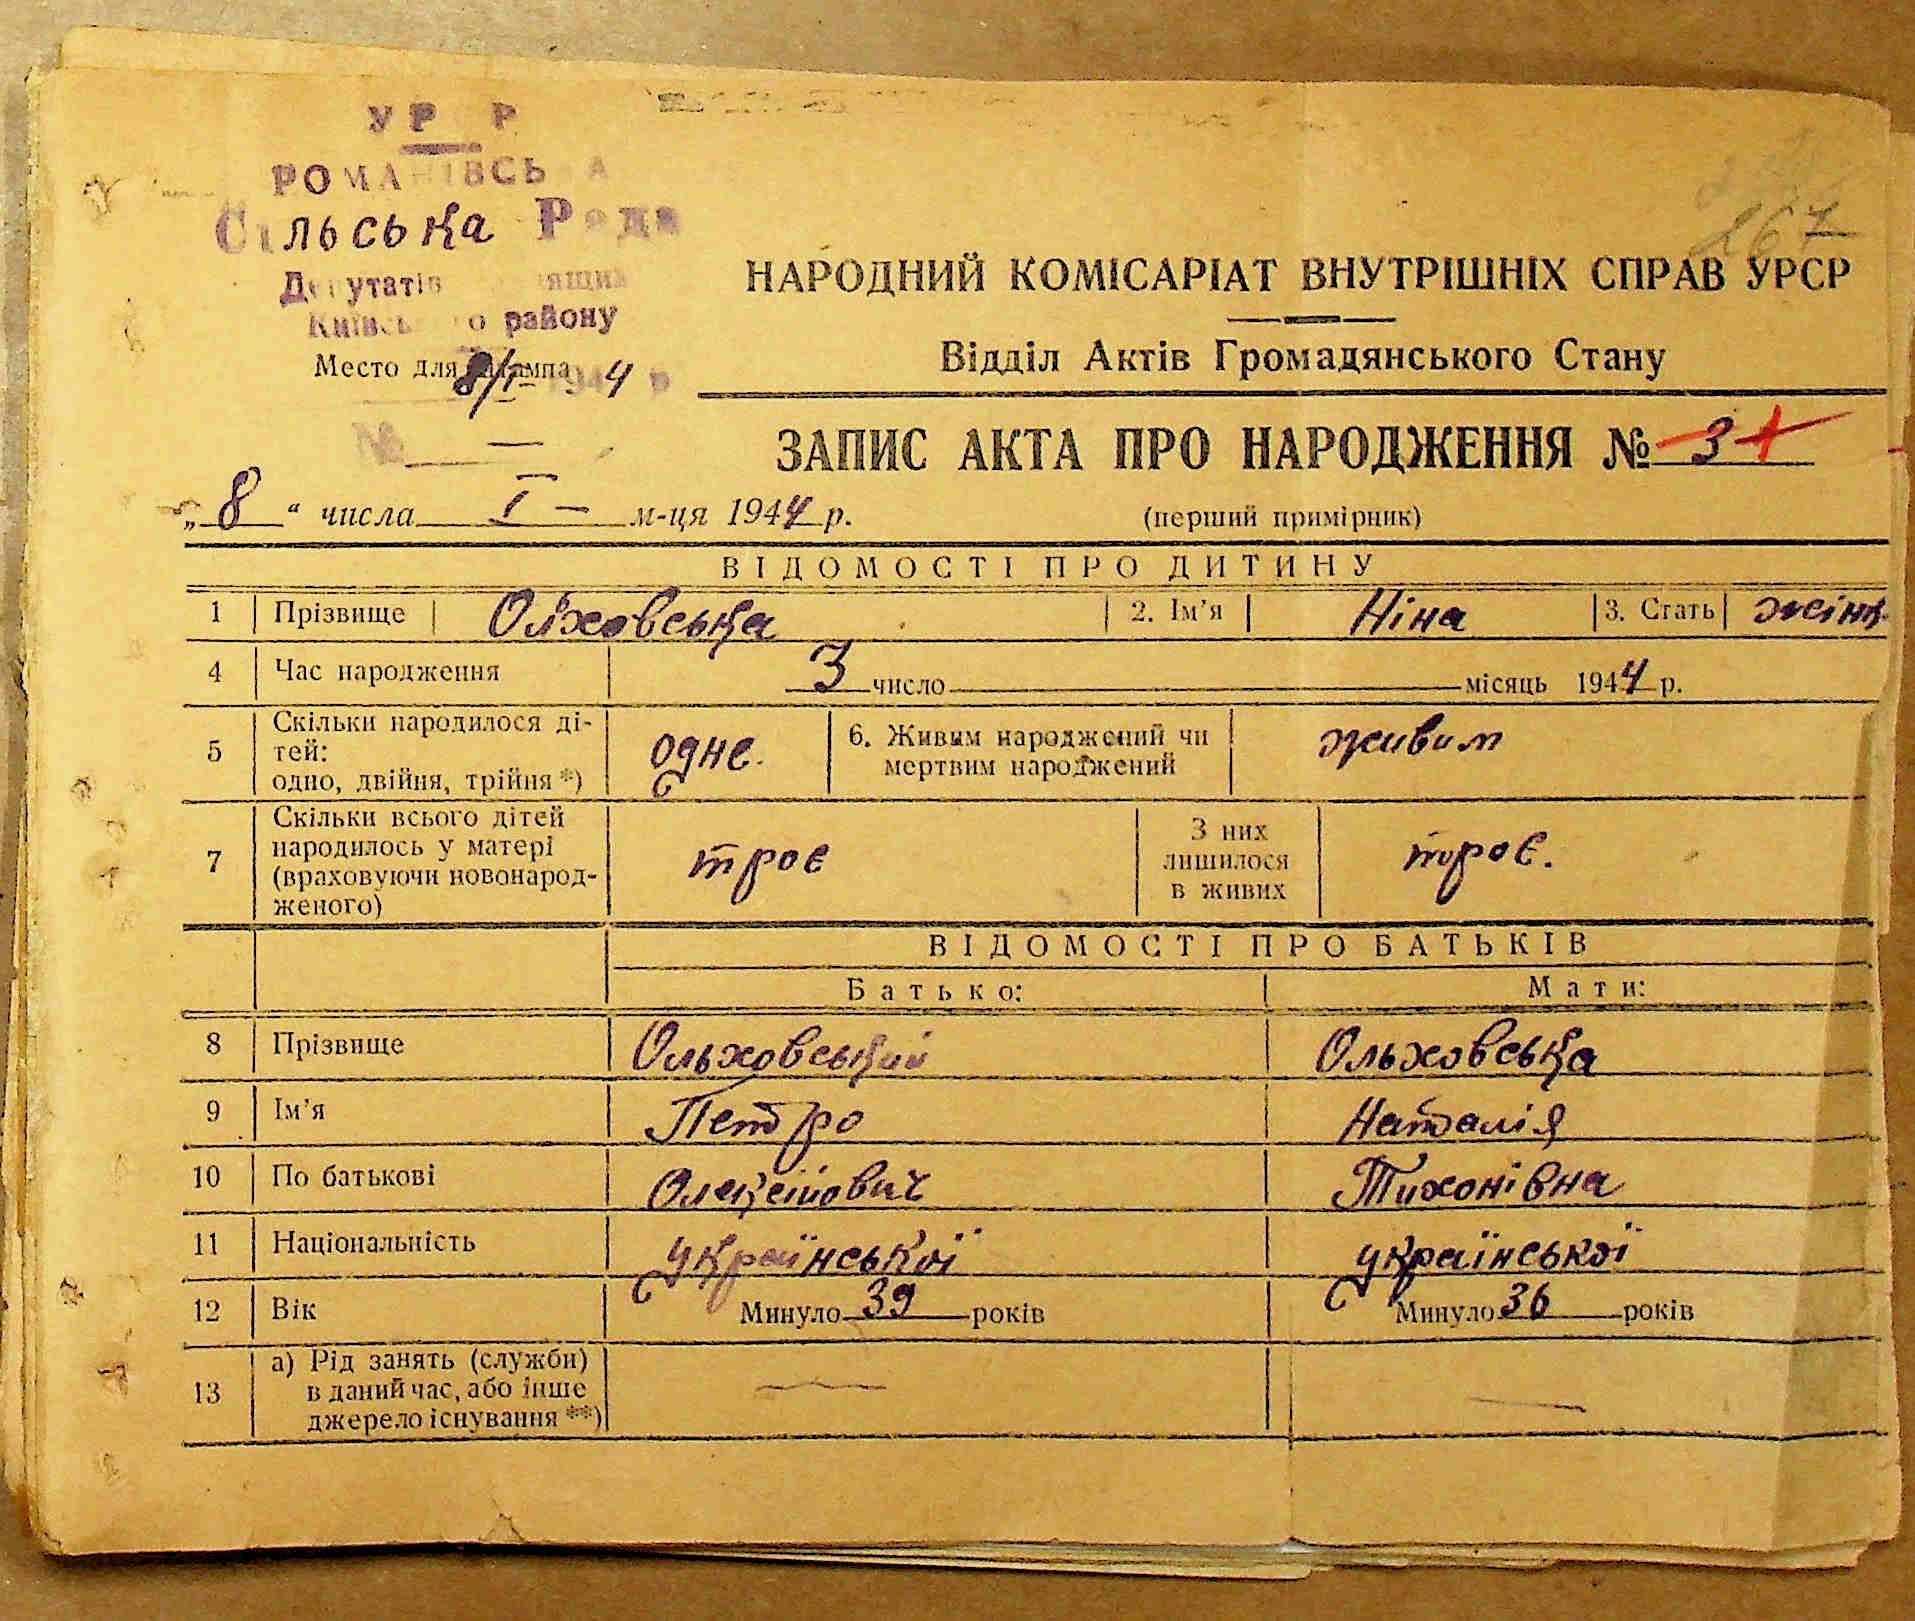 УР Р
РОМАНІВСЬКА
Сільська Рада
Депутатів
Київського району
Место для штампа
8/I 1944 р
№ —
267
НАРОДНИЙ КОМІСАРІАТ ВНУТРІШНІХ СПРАВ УРСР
Відділ Актів Громадянського Стану
ЗАПИС АКТА ПРО НАРОДЖЕННЯ № 3
„8“ числа I – м-ця 1944 р.
(перший примірник)
ВІДОМОСТІ ПРО ДИТИНУ
1 Прізвище Ольховська 2. Ім'я Ніна 3. Стать жіноч.
4 Час народження 3 число місяць 1944 р.
5 Скільки народилося ді-
тей:
одно, двійня, трійня *)
одне.
6. Живим народжений чи
мертвим народжений
живим
7 Скільки всього дітей
народилось у матері
(враховуючи новонарод-
женого)
троє
З них
лишилося
в живих
троє.
ВІДОМОСТІ ПРО БАТЬКІВ
Батько: Мати:
8 Прізвище Ольховський Ольховська
9 Ім'я Петро Наталія
10 По батькові Олексійович Тихонівна
11 Національність української української
12 Вік Минуло 39 років Минуло 36 років
13 а) Рід занять (служби)
в даний час, або інше
джерело існування **)
— —